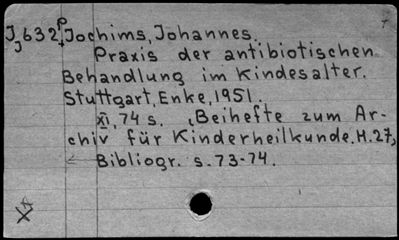 J, 632 P Jochims, Johannes.
Praxis der antibiotischen
Behandlung im Kindesalter.
Stuttgart, Enke, 1951.
XI, 74 s. (Beihefte zum Ar-
chiv für Kinderheilkunde. H. 27)
Bibliogr. s. 73-74.